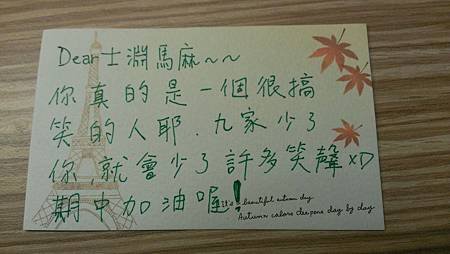 Dear 士淵馬麻~~
你真的是一個很搞
笑的人耶.九家少了
你,就會少了許多笑聲XD
期中加油喔!
It's beautiful autumn day
Autumn colors deepens day by day